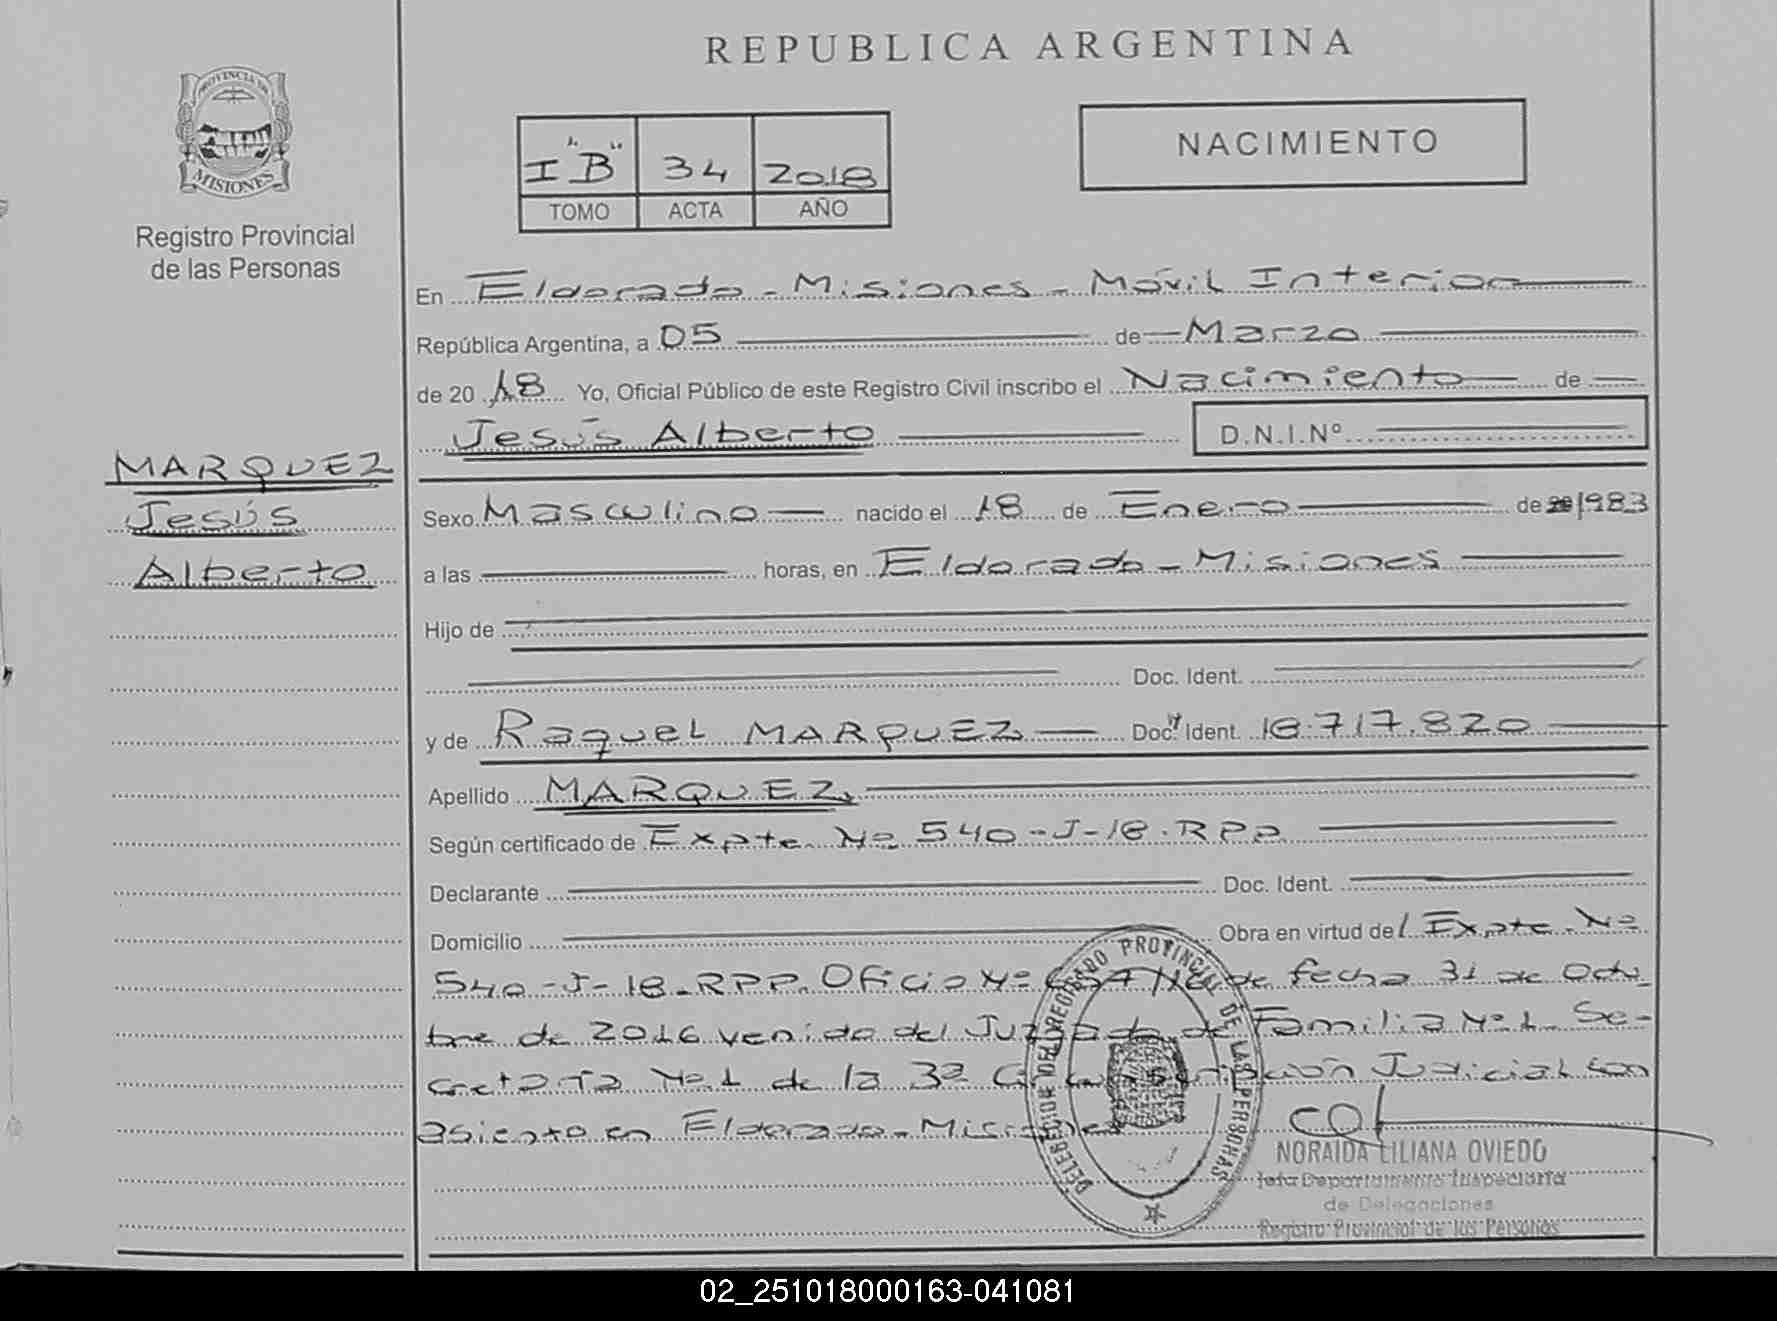 REPUBLICA ARGENTINA
PROVINCIA DE
MISIONES
Registro Provincial
de las Personas
I "B" 34 2018
TOMO ACTA AÑO
NACIMIENTO
En Eldorado - Misiones - Móvil Interior
República Argentina, a 05 de Marzo
de 20 18 Yo, Oficial Público de este Registro Civil inscribo el Nacimiento de
Jesús Alberto D.N.I.Nº
MARQUEZ
Jesús
Alberto
Sexo Masculino nacido el 18 de Enero de 1983
a las horas, en Eldorado - Misiones
Hijo de
Doc. Ident.
y de Raquel MARQUEZ Doc. Ident. 18.717.820
Apellido MARQUEZ
Según certificado de Expte. Nº 540-J-18.RPP
Declarante Doc. Ident.
Domicilio Obra en virtud del Expte. Nº
540-J-18-RPP. Oficio Nº de fecha 31 de Octu
bre de 2016 venido del Juzgado de Familia Nº 1 Se-
cretaría Nº 1 de la 3ª Circunscripción Judicial con
asiento en Eldorado - Misiones
DELEGACION DEL REGISTRO PROVINCIAL DE LAS PERSONAS
NORAIDA LILIANA OVIEDO
Jefa Departamento Inspectoria
de Delegaciones
Registro Provincial de las Personas
02_251018000163-041081